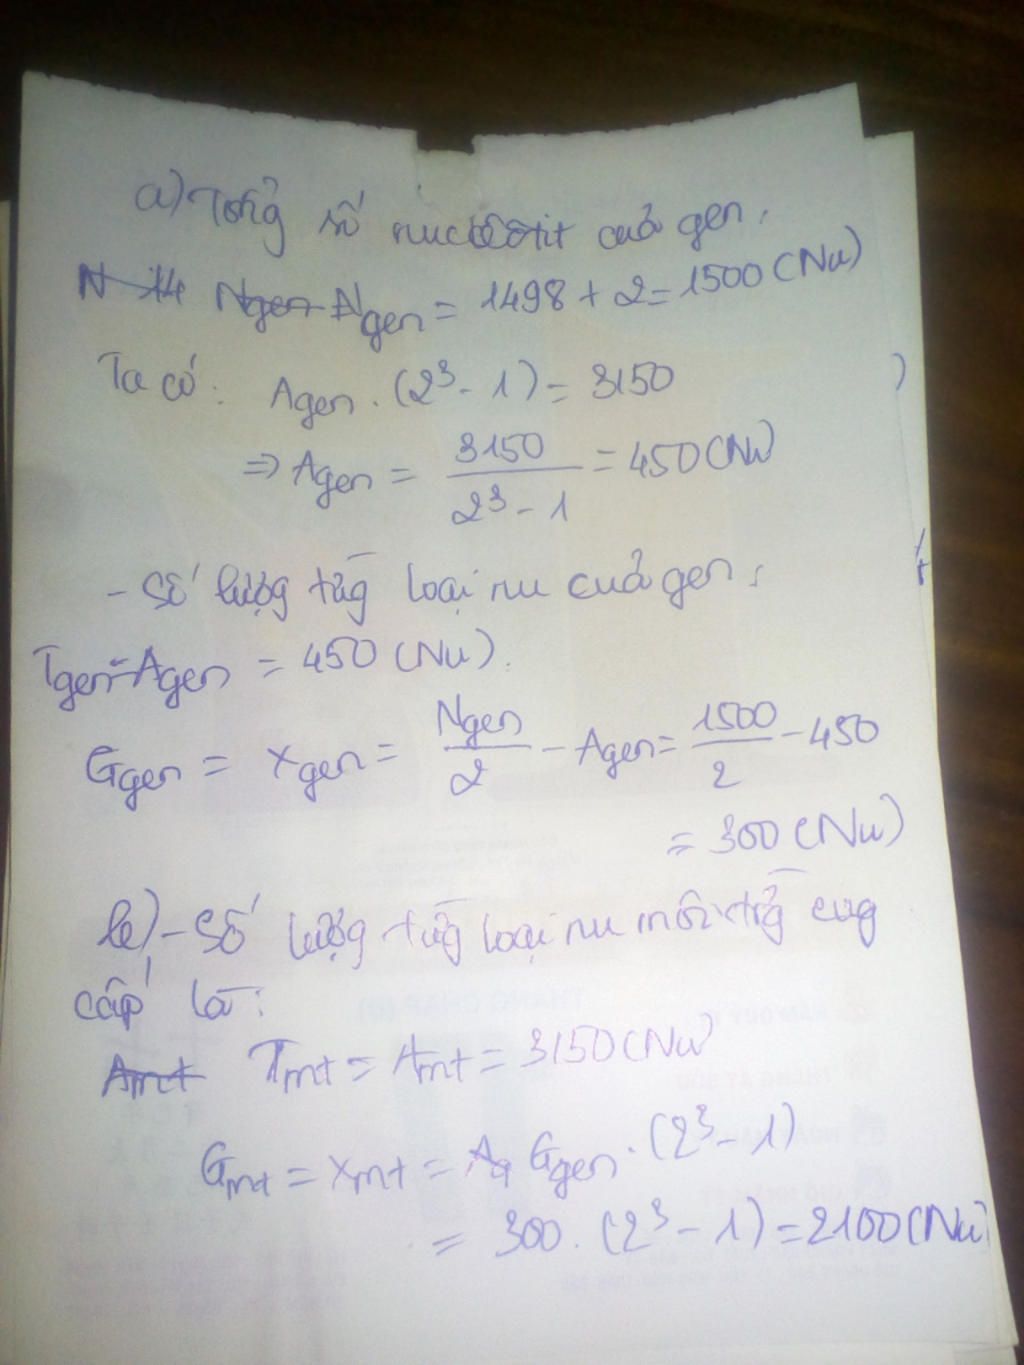 a) Tổng số nuclêôtit của gen:
N 14 Ngen Ngen = 1498 + 2 = 1500 (Nu)
Ta có: Agen . (2³ - 1) = 3150
=> Agen = 3150 / 2³ - 1 = 450 (Nu)
- Số lượng từg loại nu của gen:
Tgen = Agen = 450 (Nu).
Ggen = Xgen = Ngen / 2 - Agen = 1500 / 2 - 450
= 300 (Nu)
b) - Số lượg từg loại nu môi trườg cug
cấp là:
Amt Tmt = Amt = 3150 (Nu)
Gmt = Xmt = Ggen . (2³ - 1)
= 300 . (2³ - 1) = 2100 (Nu)